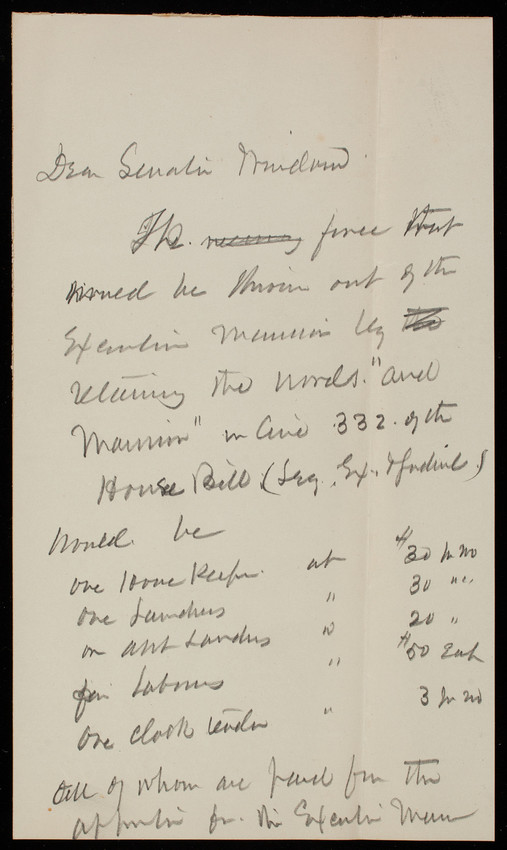 Dear Senator Windom
The force that
would be thrown out of the
Executive Mansion by the
retaining the words "and
Mansion" in line 332. of the
House Bill (Leg. Ex. & Judicial)
would be
one House Keeper at $30 pr mo
one Laundress " 30 " "
on asst Laundress " 20 "
Laborers " $50 Each
One clock tender " 3 pr mo
All of whom are paid from the
for the Executive Man